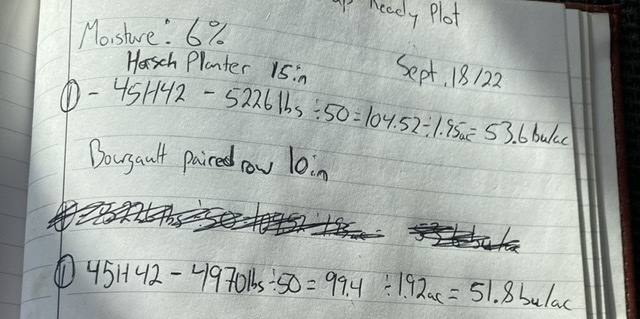 Ready Plot
Moisture: 6%
Horsch Planter 15in Sept. 18/22
① - 45H42 - 5226lbs ÷50=104.52÷1.95ac= 53.6bu/ac
Bourgault paired row 10in
① 45H42 - 4970lbs÷50= 99.4 ÷1.92ac = 51.8bu/ac